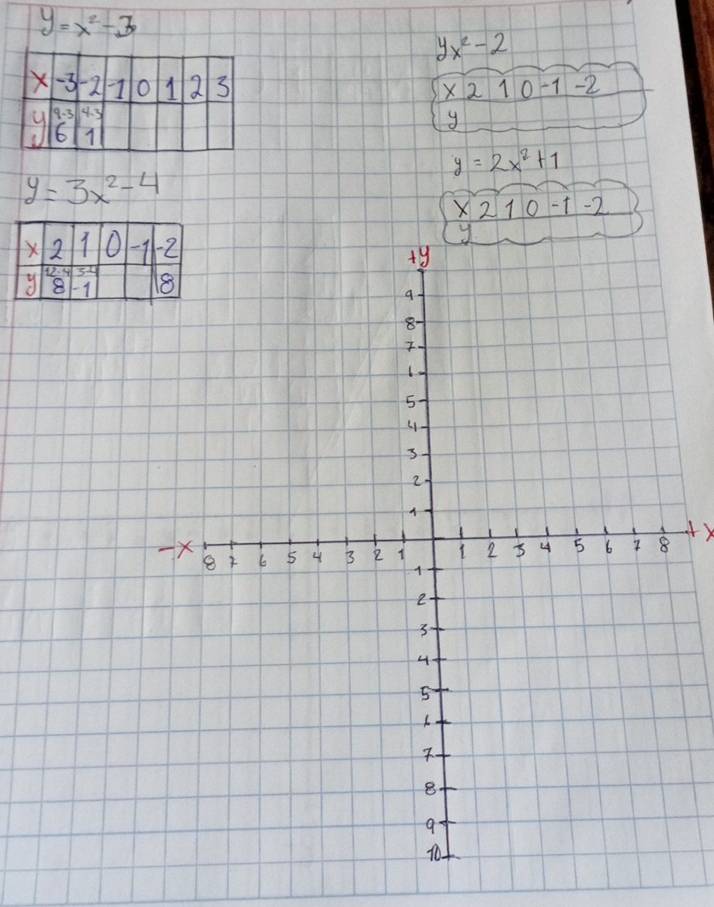 y=x²-3
x -3 -2 -1 0 1 2 3
9-3 4-3
y 6 1
y=3x²-4
x 2 1 0 -1 -2
12-4 3-4
y 8 -1 8
yx²-2
x 2 1 0 -1 -2
y
y=2x²+1
x 2 1 0 -1 -2
y
+y
9
8
7
6
5
4
3
2
1
-x 8 7 6 5 4 3 2 1 1 2 3 4 5 6 7 8 +x
1
2
3
4
5
6
7
8
9
10